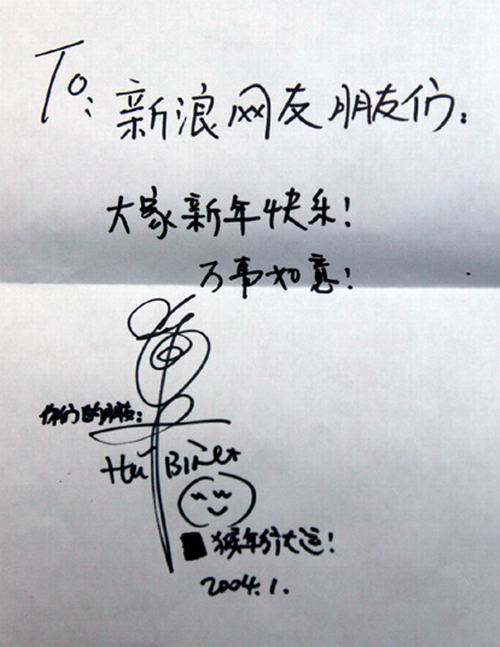 To: 新浪网友朋友们:
大家新年快乐!
万事如意!
你们的朋友:
猴年行大运!
2004.1.